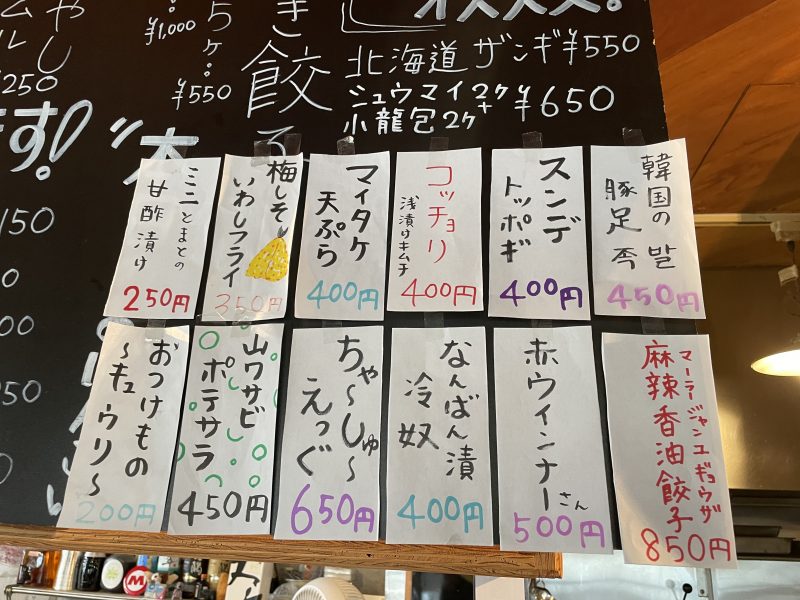 ¥1,000
5ヶ。
¥550
き餃子
オススメ!
北海道 ザンギ ¥550
シュウマイ2ヶ+
小龍包2ヶ
¥650
250
ます!
150
韓国の
豚足 족발
450円
スンデ
トッポギ
400円
コッチョリ
浅漬けキムチ
400円
マイタケ
天ぷら
400円
梅しそ
いわしフライ
350円
ミニとまとの
甘酢漬け
250円
マーラージャンユギョウザ
麻辣香油餃子
850円
赤ウインナーさん
500円
なんばん漬
冷奴
400円
ちゃ〜しゅ〜
えっぐ
650円
山ワサビ
ポテサラ
450円
おつけもの
〜キュウリ〜
200円